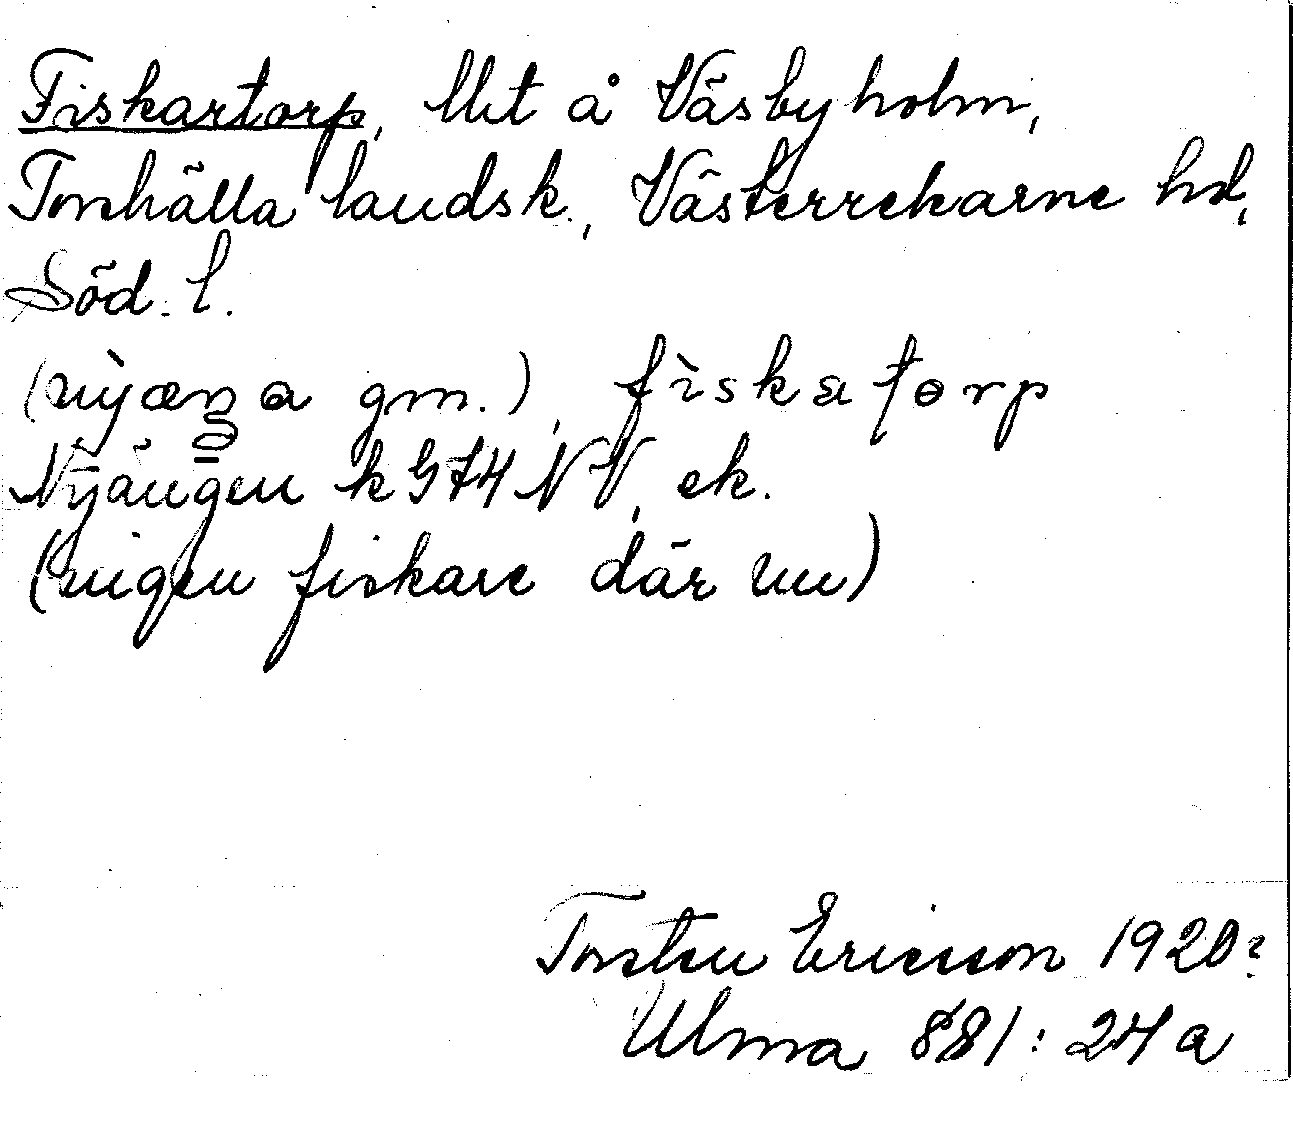 Fiskartorp, lht å Väsbyholm,
Torshälla landsk., Västerrekarne hd,
Söd. l.
gm.), fìskatorp
Nyängen k G74 NV, ek.
(ingen fiskare där nu)
Torsten Ericsson 1920?
Ulma 881:24a